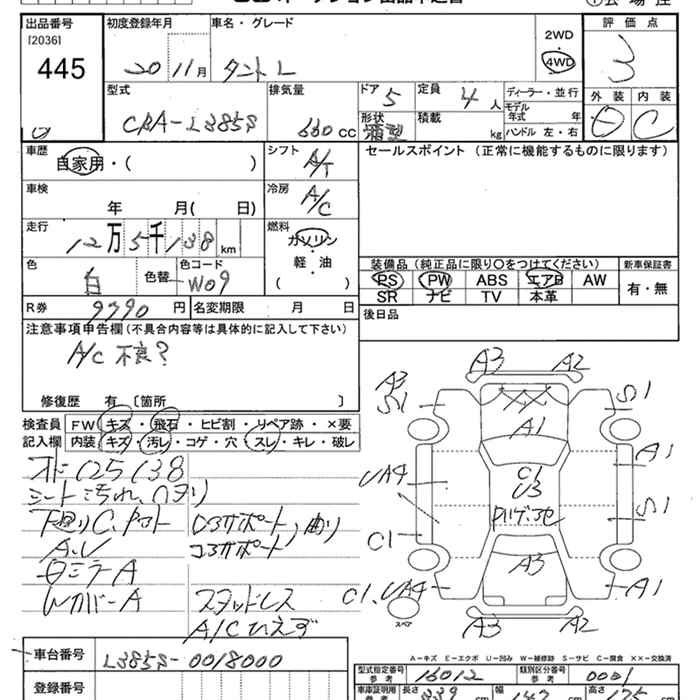 出品番号
[2036]
445
初度登録年月
20 11 月
車名・グレード
タント L
2WD
4WD
評価点
3
型式
CBA-L385S
排気量
660 cc
ドア 5
形状
定員 4 人
積載 kg
ディーラー・並行
モデル年式 年
ハンドル 左・右
外装 内装
C
車歴
自家用・( )
シフト A/T
車検 年 月( 日)
冷房 A/C
走行 12万5千138 km
燃料
ガソリン
軽・油
( )
色 白 色替 色コード W09
R券 9990 円
名変期限 月 日
セールスポイント (正常に機能するものに限ります)
装備品 (純正品に限り○をつけてください)
PS PW ABS エアB AW
SR ナビ TV 本革
新車保証書
有・無
後日品
注意事項申告欄 (不具合内容等は具体的に記入して下さい)
A/C 不良?
修復歴 有 〔箇所 〕
検査員記入欄
FW キズ・飛石・ヒビ割・リペア跡・×要
内装 キズ・汚レ・コゲ・穴・スレ・キレ・破レ
シート汚れ、
A、U
Wカバー A
コアサポート
スタッドレス
A/Cひえず
A3 A2
A3 S1
S1
A1
A1
C1
U3
UA4
S1
C1
A3
C1、UA4
A1
スペア
A3 A2
A-キズ E-エクボ U-凹み W-補修跡 S-サビ C-腐食 ××-交換済
車台番号 L385S-0018000
登録番号
型式指定番号 参考 16012
類別区分番号 参考 0001
車庫証明用 参考 長さ 339 幅 147 高さ 175